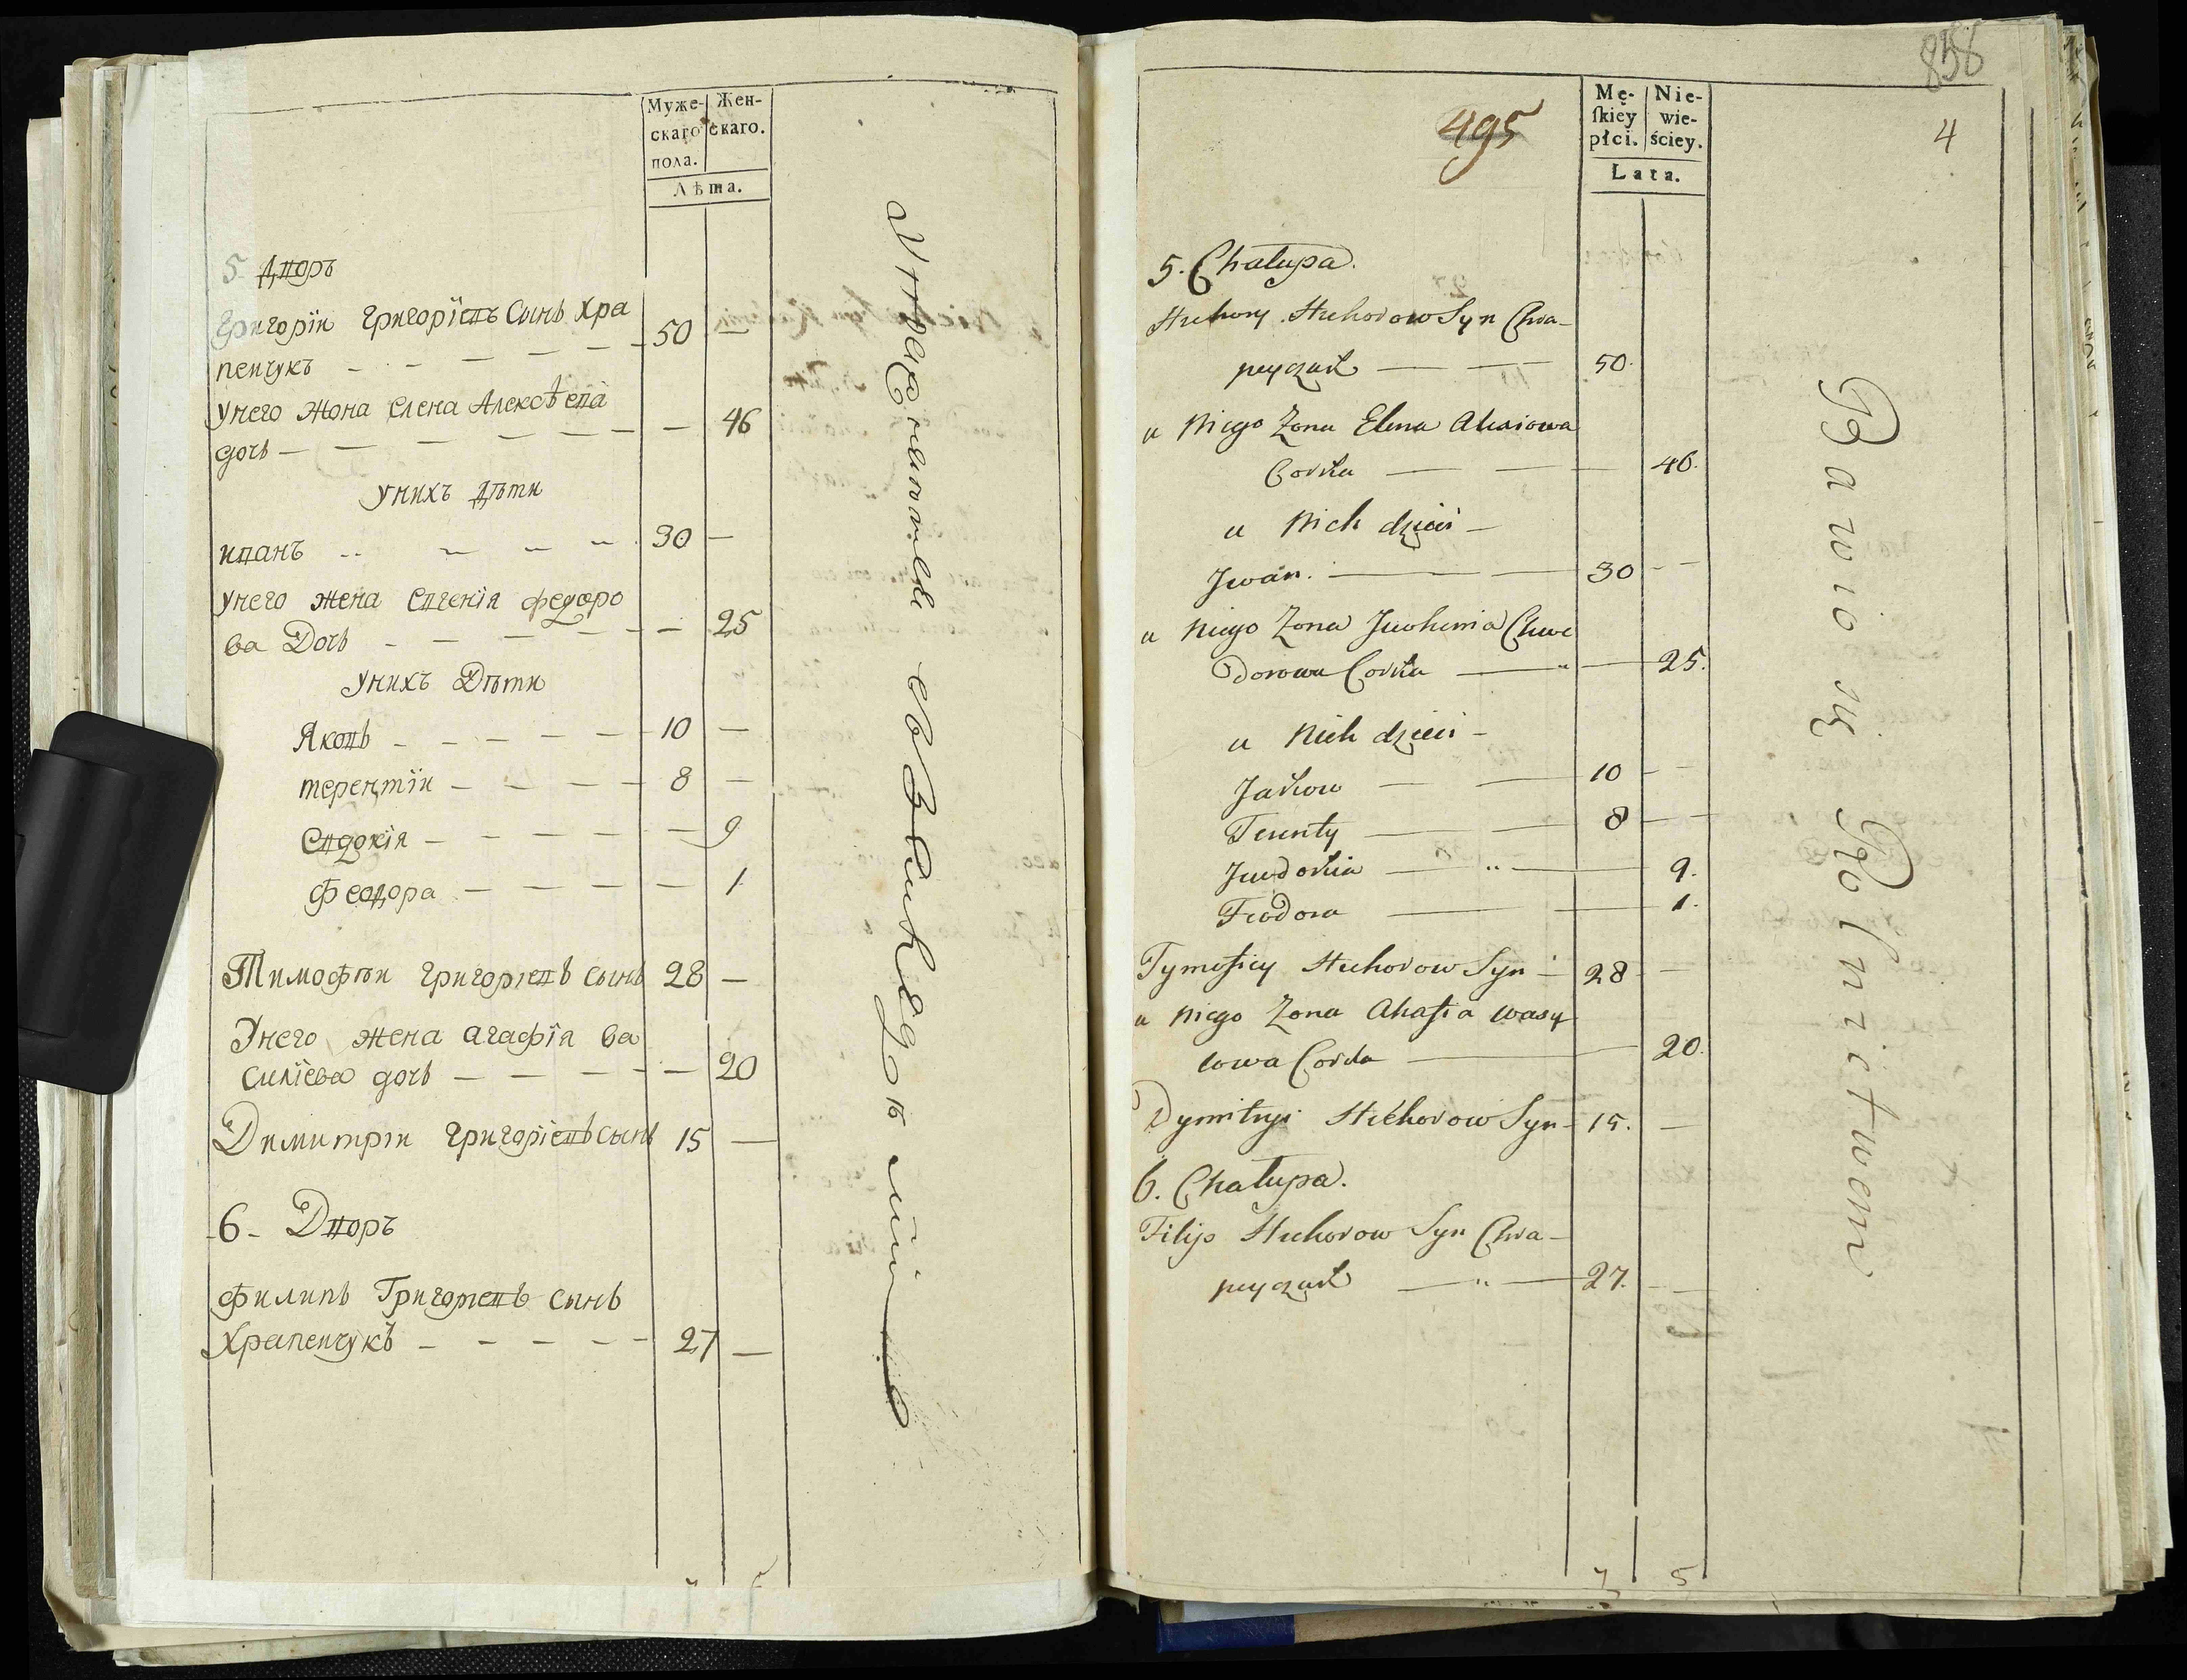 Муже- Жен-
скаго скаго.
пола.
Лѣта.
5 Дворъ
Григорїи Григорїевъ Сынъ Хра
пенчукъ - - - - - - 50 -
Унего жона Елена Алексѣева
дочь - - - - - - - 46
Унихъ Дѣти
иванъ - - - - 30 -
Унего жена Евгенїя федоро
ва Дочь - - - - - - 25
Унихъ Дѣти
Яковъ - - - - - 10 -
терентїи - - - - 8 -
Евдокїя - - - - - 9
Феодора - - - - 1
Тимофѣи григориевъ сынъ 28 -
Унего жена агафїя ва
силїева дочь - - - - - 20
Димитрїи григорїевъ сынъ 15 -
6 - Дворъ
Филипъ Григориевъ сынъ
Храпенчукъ - - - - 27 -
858
495
Mę- Nie-
ſkiey wie-
płci. ściey.
Lata.
4
5. Chałupa.
Hrehory Hrehorow Syn Chra-
peyczuk — — 50.
u Niego Żona Elena Alexiowa
Corka — — 46.
u Nich dzieci -
Jwan. — — 30 - -
u Niego Żona Jwohenia Chwe
dorowa Corka — — 25.
u Nich dzieci -
Jakow — — 10 - -
Terenty — — 8 - -
Jewdokia — " — 9.
Feodora — — 1.
Tymofiey Hrehorow Syn - 28 -
u Niego Żona Ahafia Wasy
lowa Corka — 20.
Dymitryi Hrehorow Syn - 15. -
6. Chałupa.
Filip Hrehorow Syn Chra-
peyczuk — " — 27. - -
Bawią Rolnictwem
7 5